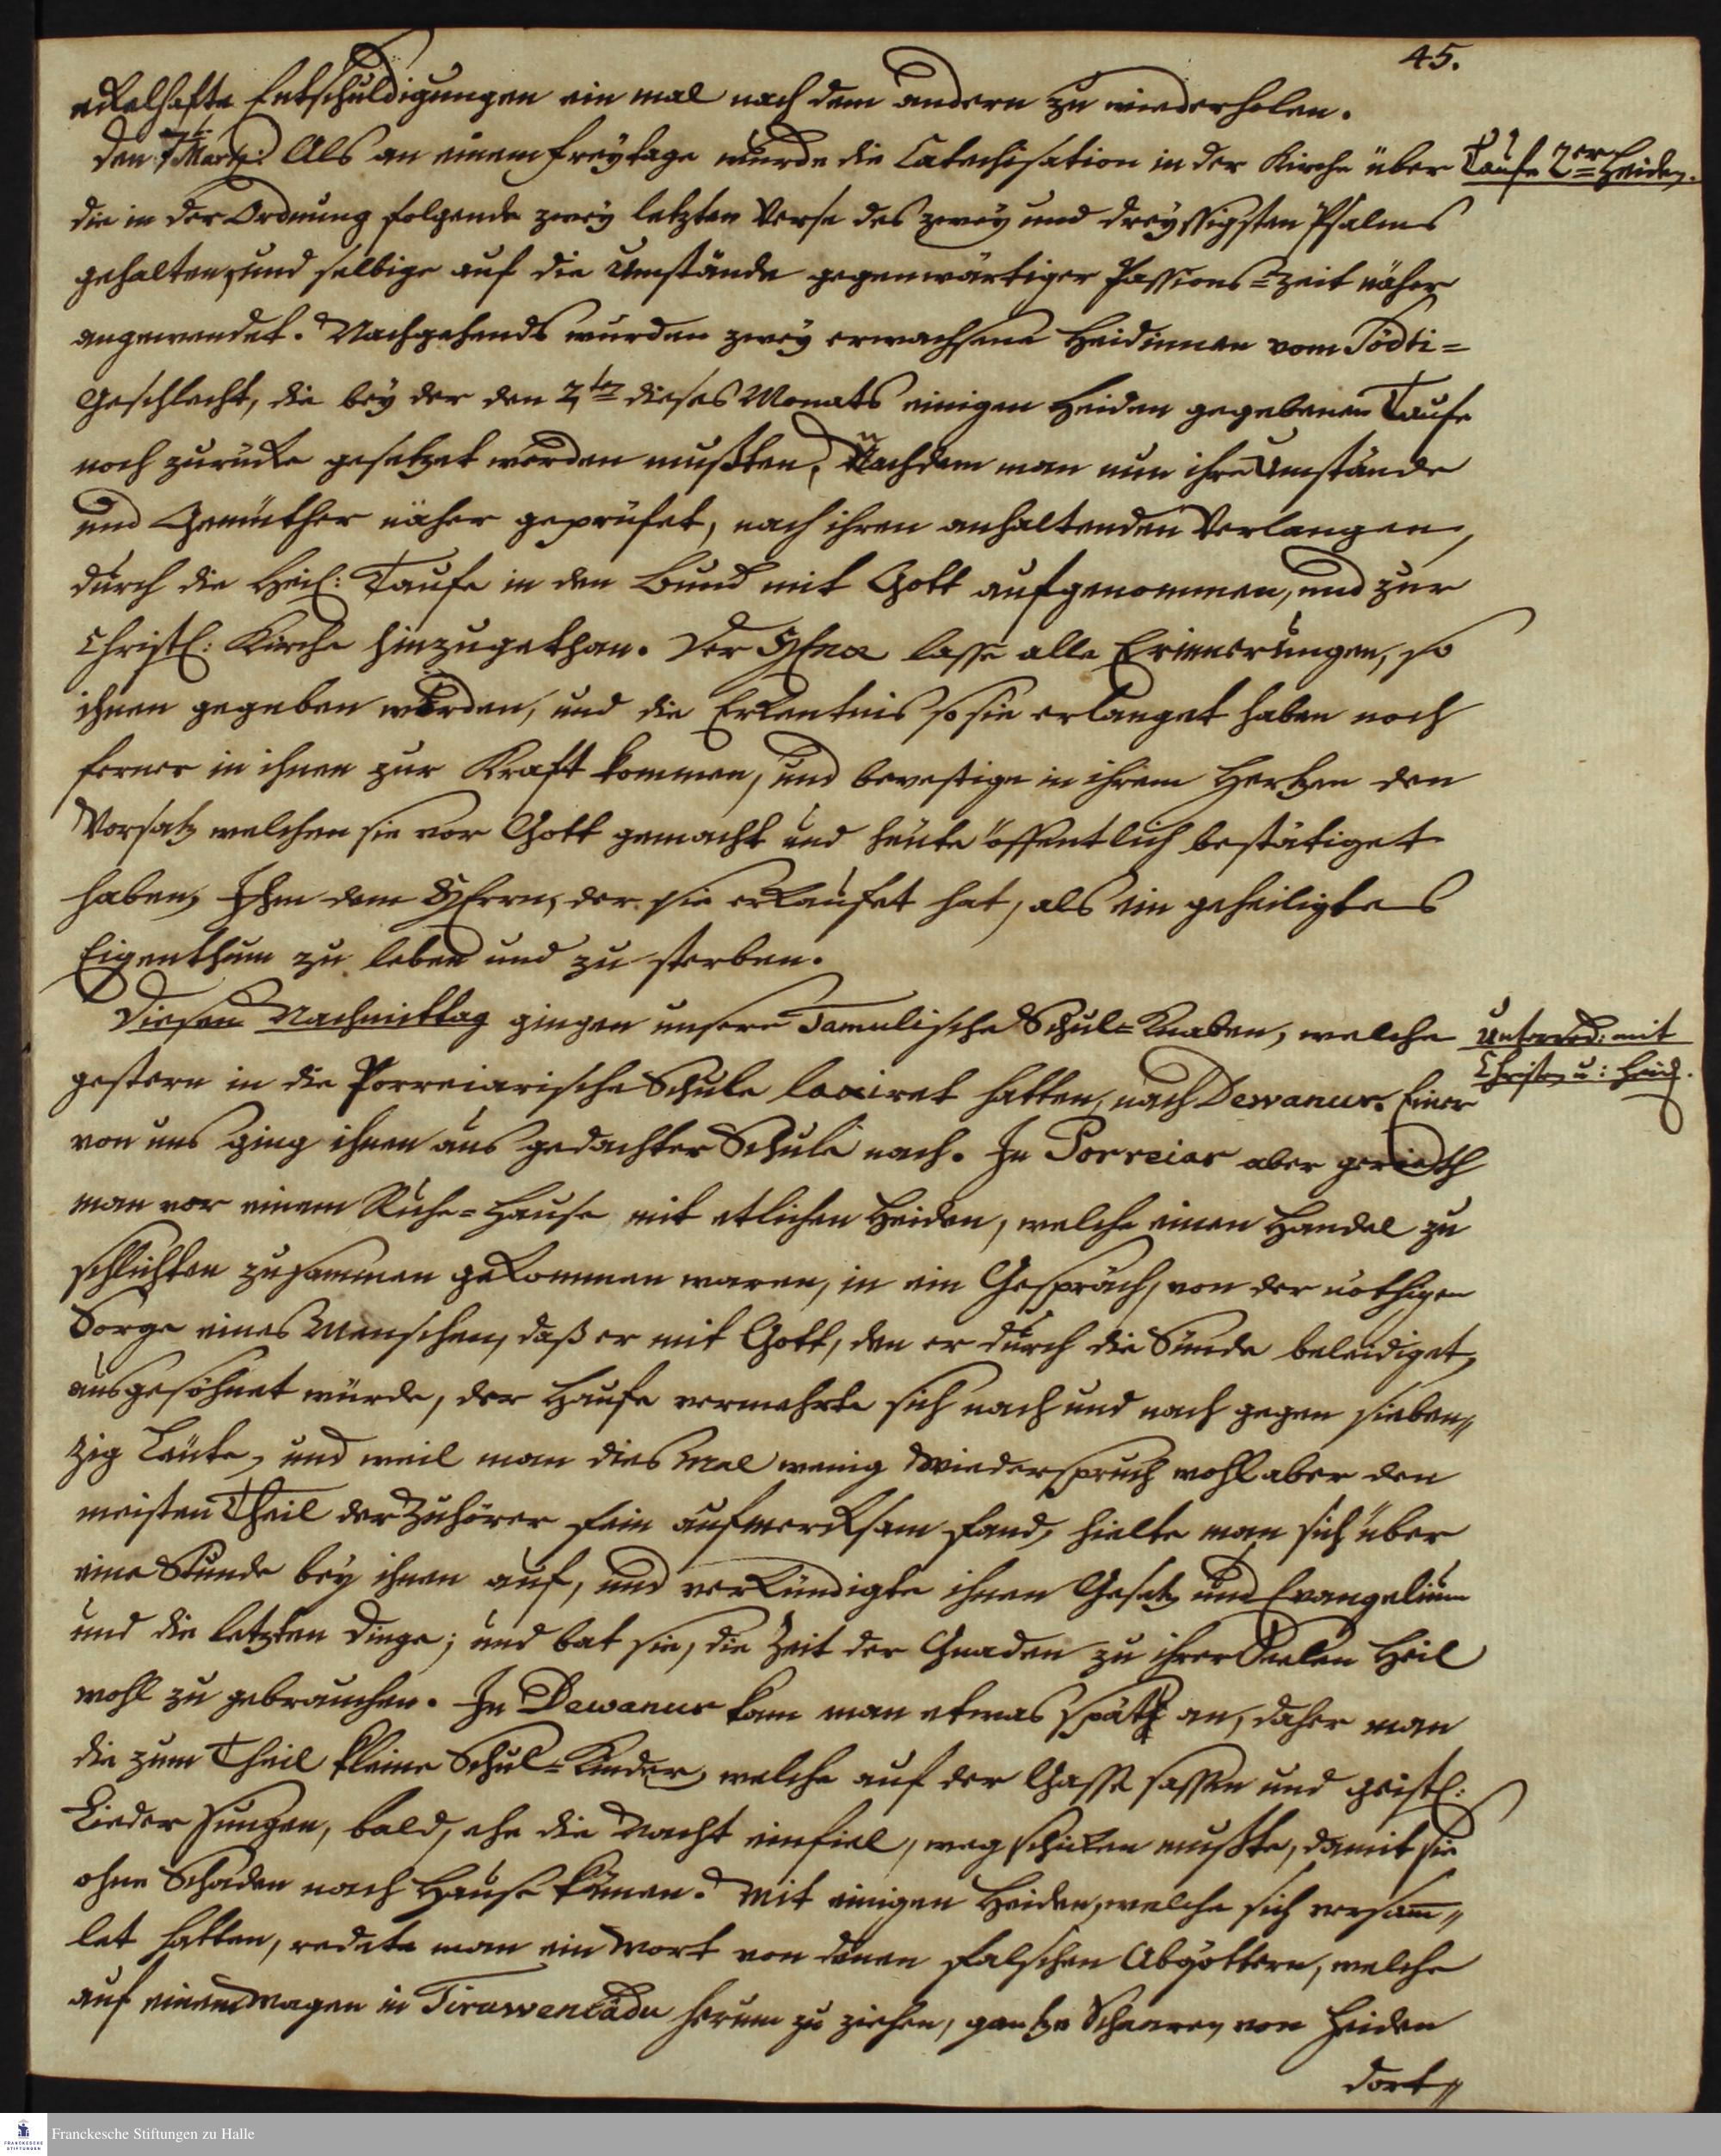 45.
eckelhafte Entschuldigungen ein mal nach dem andern zu wiederholen.
Den 7t. Martz: Als an einem Freytage wurde die Catechisation in der Kirche über
Taufe 2er Heiden.
die in der Ordnung folgende zwey letzten Verse des zwey und dreyssigsten Psalms
gehalten, und selbige auf die Umstände gegenwärtiger Passions-Zeit näher
angewendet. Nachgehends wurden zwey erwachsene Heidinnen vom Tödti-
Geschlecht, die bey der den 2ten dieses Monats einigen Heiden gegebenen Taufe
noch zurücke gesetzet werden mußten, Nachdem man nun ihre Umstände
und Gemüther näher geprüfet, nach ihren anhaltenden Verlangen,
durch die Heil: Taufe in den Bund mit Gott aufgenommen, und zur
Christl: Kirche hinzugethan. Der HErr lasse alle Erinnerungen, so
ihnen gegeben worden, und die Erkentnis so sie erlanget haben noch
ferner in ihnen zur Kraft kommen, und bevestige in ihrem Hertzen den
Vorsatz welchen sie vor Gott gemacht und heute öffentlich bestätiget
haben, Ihm dem HErrn, der sie erkaufet hat, als ein geheiligtes
Eigenthum zu leben und zu sterben.
Diesen Nachmittag gingen unsere Tamulische Schul-Knaben, welche
Unterred: mit
Christen u: Heid.
gestern in die Porreiarische Schule laxiret hatten, nach Dewanur. Einer
von uns ging ihnen aus gedachter Schule nach. In Porreiar aber gerieth
man vor einem Ruhe-Hause mit etlichen Heiden, welche einen Handel zu
schlichten zusammen gekommen waren, in ein Gespräch, von der nöthigen
Sorge eines Menschen, daß er mit Gott, den er durch die Sünde beleidiget,
ausgesöhnet würde, der Haufe vermehrte sich nach und nach gegen sieben〃
zig Leute, und weil man dies Mal wenig Wiederspruch wohl aber den
meisten Theil der Zuhörer fein aufmercksam fand, hielte man sich über
eine Stunde bey ihnen auf, und verkündigte ihnen Gesetz und Evangelium
und die letzten Dinge; und bat sie, die Zeit der Gnaden zu ihrer Seelen Heil
wohl zu gebrauchen. In Dewanur kam man etwas spät an, daher man
die zum Theil kleine Schul-Kinder, welche auf der Gasse sassen und geistl:
Lieder sungen, bald, ehe die Nacht einfiel, weg schicken mußte, damit sie
ohne Schaden nach Hause kämen. Mit einigen Heiden, welche sich versam̄〃
let hatten, redete man ein Wort von denen falschen Abgöttern, welche
auf einem Wagen in Tiruwenkädu herum zu ziehen, gantze Schaaren von Heiden
dort〃
Franckesche Stiftungen zu Halle